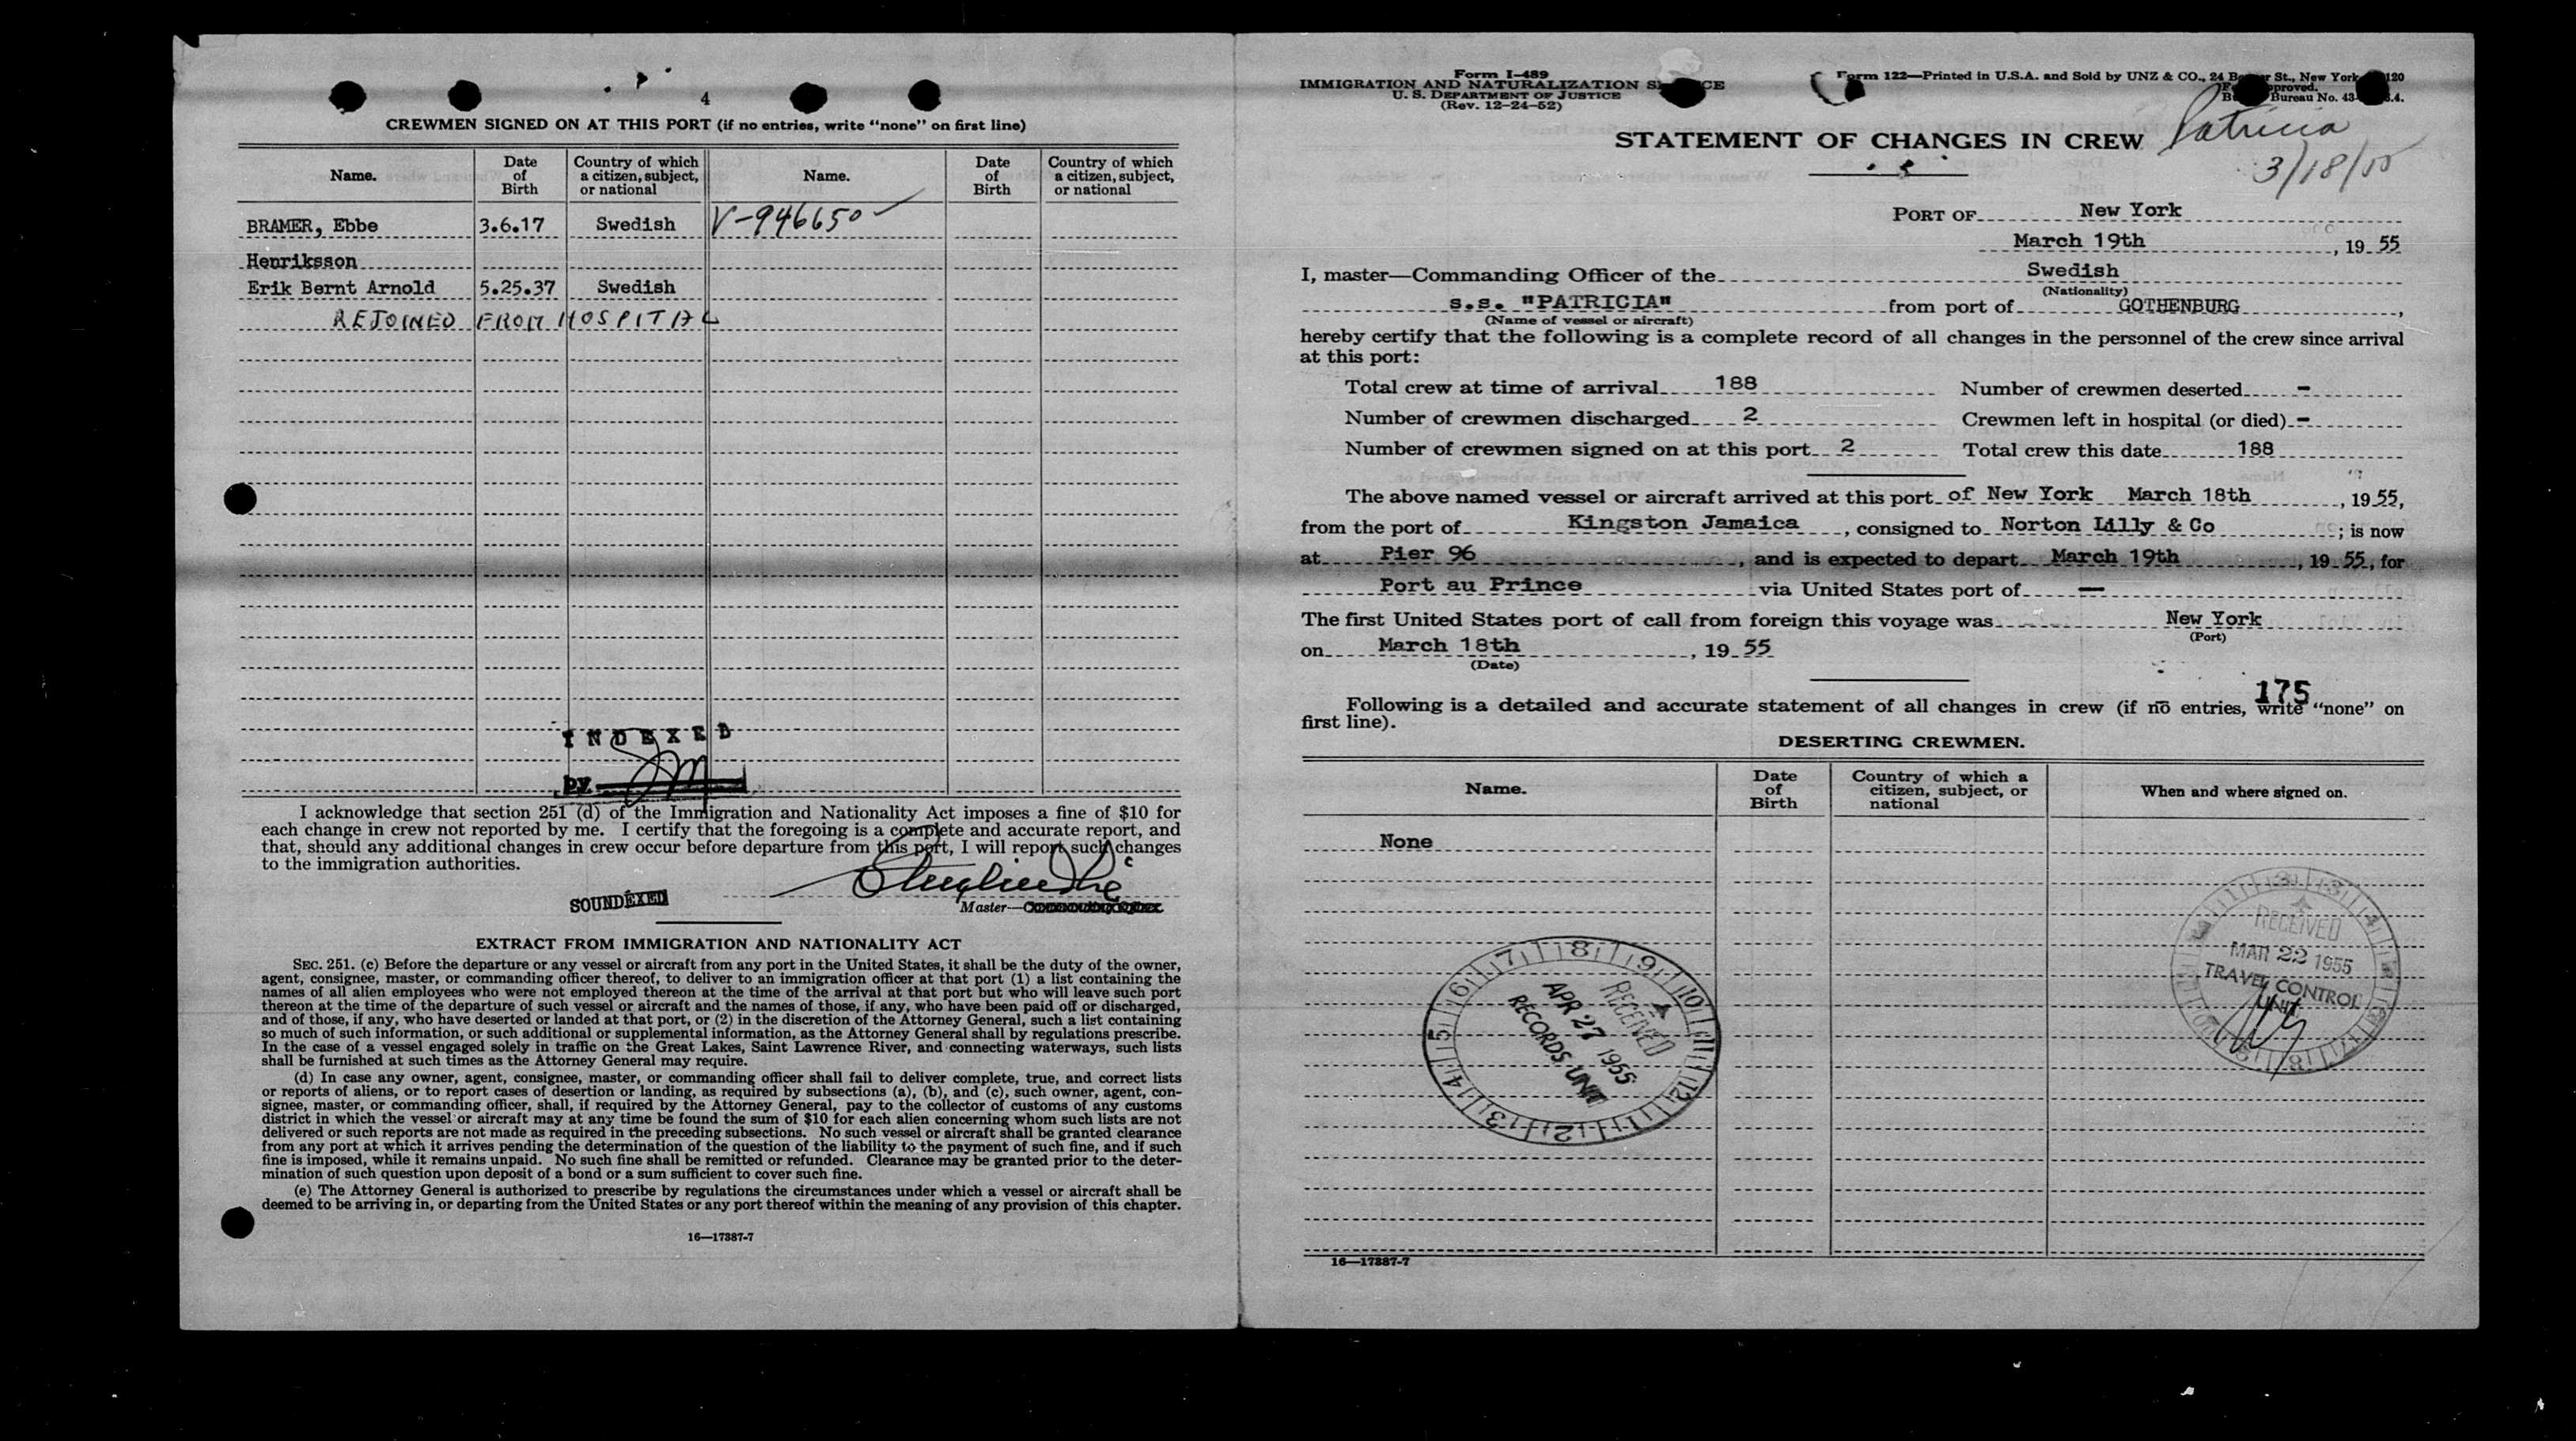 4
CREWMEN SIGNED ON AT THIS PORT (if no entries, write “none” on first line)
Name. Date of Birth Country of which a citizen, subject, or national Name. Date of Birth Country of which a citizen, subject, or national
BRAMER, Ebbe 3.6.17 Swedish V-946650
Henriksson
Erik Bernt Arnold 5.25.37 Swedish
REJOINED FROM HOSPITAL
INDEXED
by
I acknowledge that section 251 (d) of the Immigration and Nationality Act imposes a fine of $10 for
each change in crew not reported by me. I certify that the foregoing is a complete and accurate report, and
that, should any additional changes in crew occur before departure from this port, I will report such changes
to the immigration authorities.
SOUNDEXED
Master—
EXTRACT FROM IMMIGRATION AND NATIONALITY ACT
SEC. 251. (c) Before the departure or any vessel or aircraft from any port in the United States, it shall be the duty of the owner,
agent, consignee, master, or commanding officer thereof, to deliver to an immigration officer at that port (1) a list containing the
names of all alien employees who were not employed thereon at the time of the arrival at that port but who will leave such port
thereon at the time of the departure of such vessel or aircraft and the names of those, if any, who have been paid off or discharged,
and of those, if any, who have deserted or landed at that port, or (2) in the discretion of the Attorney General, such a list containing
so much of such information, or such additional or supplemental information, as the Attorney General shall by regulations prescribe.
In the case of a vessel engaged solely in traffic on the Great Lakes, Saint Lawrence River, and connecting waterways, such lists
shall be furnished at such times as the Attorney General may require.
(d) In case any owner, agent, consignee, master, or commanding officer shall fail to deliver complete, true, and correct lists
or reports of aliens, or to report cases of desertion or landing, as required by subsections (a), (b), and (c), such owner, agent, con-
signee, master, or commanding officer, shall, if required by the Attorney General, pay to the collector of customs of any customs
district in which the vessel or aircraft may at any time be found the sum of $10 for each alien concerning whom such lists are not
delivered or such reports are not made as required in the preceding subsections. No such vessel or aircraft shall be granted clearance
from any port at which it arrives pending the determination of the question of the liability to the payment of such fine, and if such
fine is imposed, while it remains unpaid. No such fine shall be remitted or refunded. Clearance may be granted prior to the deter-
mination of such question upon deposit of a bond or a sum sufficient to cover such fine.
(e) The Attorney General is authorized to prescribe by regulations the circumstances under which a vessel or aircraft shall be
deemed to be arriving in, or departing from the United States or any port thereof within the meaning of any provision of this chapter.
16—17387-7
Form I-489
IMMIGRATION AND NATURALIZATION
U. S. DEPARTMENT OF JUSTICE
(Rev. 12-24-52)
Form 122—Printed in U.S.A. and Sold by UNZ & CO., 24 St., New York
Bureau No. 43-
STATEMENT OF CHANGES IN CREW
Patricia
3/18/55
PORT OF New York
March 19th, 19 55
I, master—Commanding Officer of the Swedish
(Nationality)
s.s. "PATRICIA" from port of GOTHENBURG,
(Name of vessel or aircraft)
hereby certify that the following is a complete record of all changes in the personnel of the crew since arrival
at this port:
Total crew at time of arrival 188 Number of crewmen deserted -
Number of crewmen discharged 2 Crewmen left in hospital (or died) -
Number of crewmen signed on at this port 2 Total crew this date 188
The above named vessel or aircraft arrived at this port of New York March 18th, 19 55,
from the port of Kingston Jamaica, consigned to Norton Lilly & Co; is now
at Pier 96, and is expected to depart March 19th, 19 55, for
Port au Prince via United States port of —
The first United States port of call from foreign this voyage was New York
(Port)
on March 18th, 19 55
(Date)
175
Following is a detailed and accurate statement of all changes in crew (if no entries, write “none” on
first line).
DESERTING CREWMEN.
Name. Date of Birth Country of which a citizen, subject, or national When and where signed on.
None
RECEIVED
MAR 22 1955
TRAVEL CONTROL
UNIT
RECEIVED
APR 27 1955
RECORDS UNIT
16—17387-7